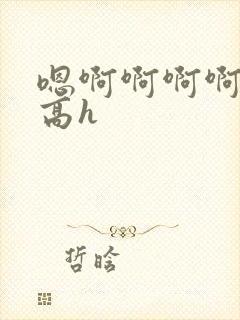 嗯啊啊啊啊
高h
哲晗